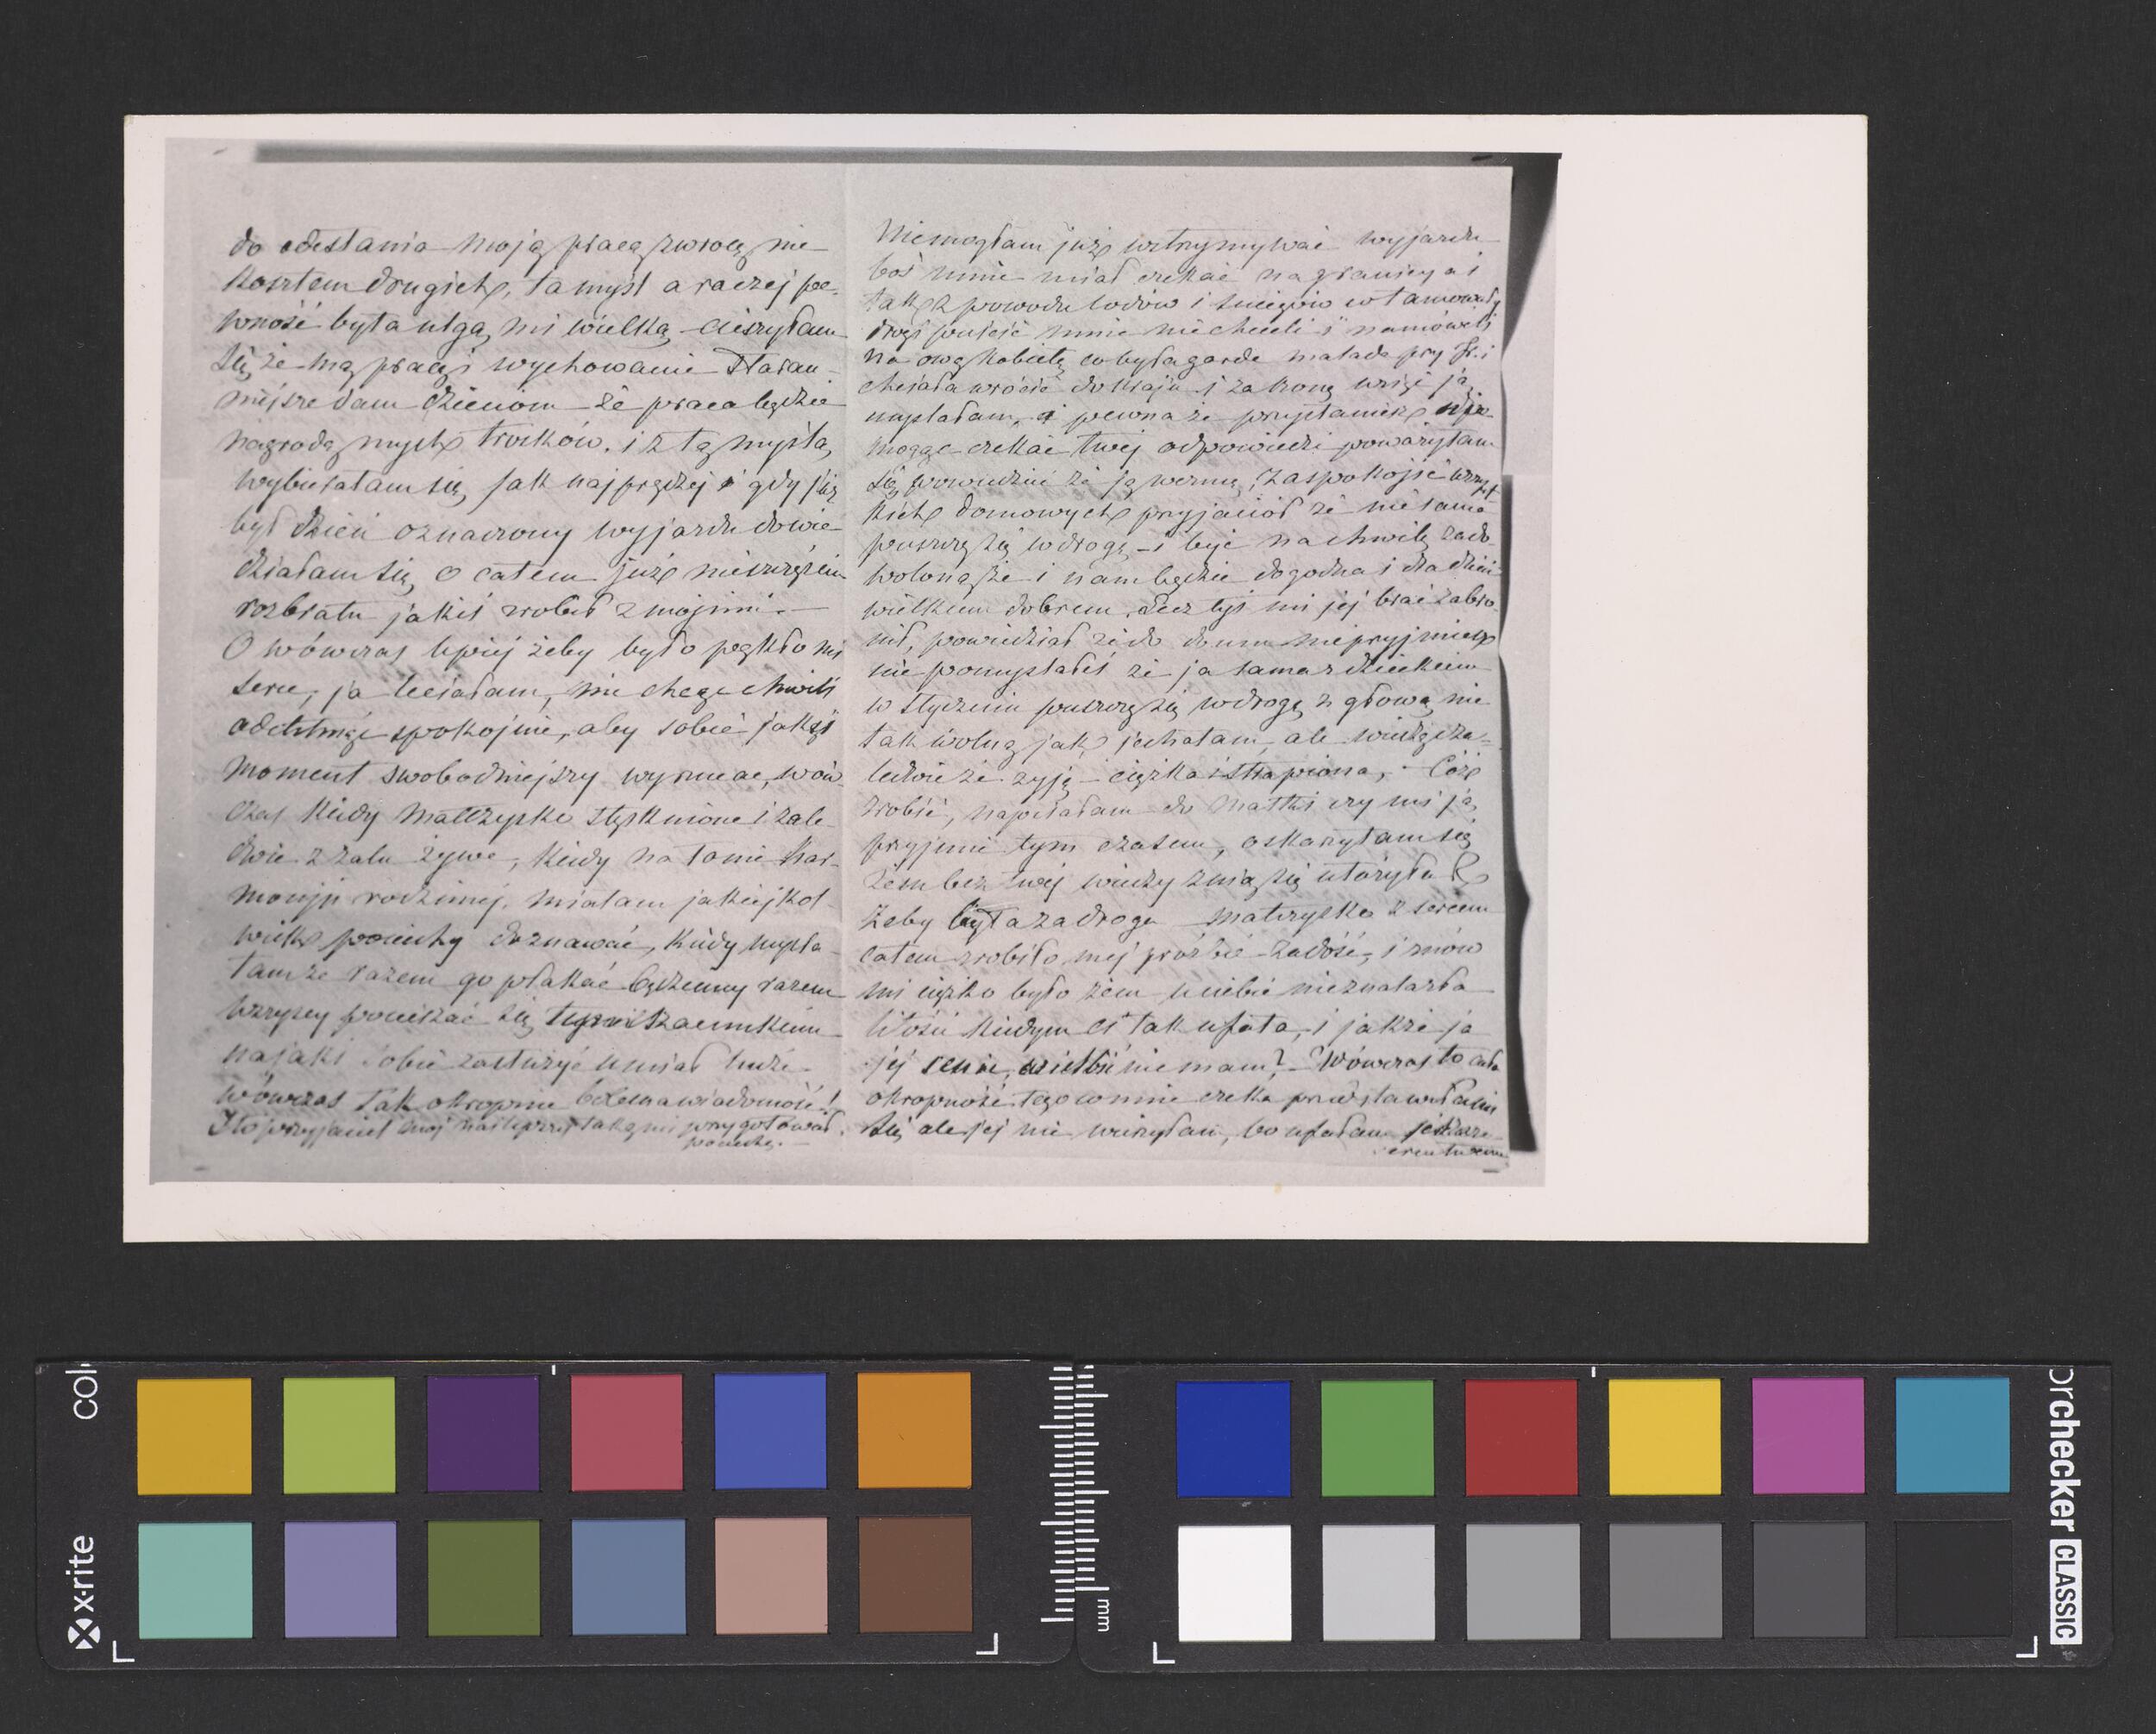 do odesłania moją pracą zwrocę nie
kosztem drugich, ta myśl a raczej pe-
wność była ulgą mi wielką – cieszyłam
się że mą pracą i wychowanie staran-
niejsze dam dzieciom – że praca będzie
nagrodą mych trosków. i z tą myślą
wybierałam się jak najprędzej i gdy już
był dzień oznaczony wyjazdu dowie-
działam się o całem już nieszczęściu
rozbratu jakiś zrobił z mojimi. —
O wówczas lepiej żeby było pękło mi
serce, ja leciałam, nie chcąc chwili
odetchnąć spokojnie, aby sobie jakąś
moment swobodniejszy wyrwać, wów-
czas kiedy matczysko stęsknione i zale-
dwie z żalu żywe, kiedy na łonie har-
monji rodzinnej. miałam jakiejkol-
wiek pociechy doznawać, kiedy mysla-
łam że razem go płakać będziemy razem
wszyscy pocieszać się szacunkiem
na jaki sobie zasłużyć umiał ludzi
wówczas tak okropnie bolesna wiadomość!
I to przyjaciel mój najlepszy taką mi przygotował
pociechę. —
Niemogłam już wstrzymywać wyjazdu
boś mnie miał czekać na granicy a i
tak z powodu lodów i śniegów wtamowały
drogi puścić mnie nie chcieli i namówili
na ową kobietę co była garde malade przy Fr. i
chciała wrócić do kraju i za broną wziąć ją
myslałam, i pewna że przystaniesz nie
mogąc czekać twej odpowiedzi poważyłam
się powiedzieć że ją wezmę, zaspokojić wszyst-
kich domowych przyjaciół że nie sama
puszczę się w drogę – i być na chwilę zado-
woloną że i nam będzie dogodna i dla dzieci
wielkiem dobrem. Lecz tyś mi jej brać zabro-
nił, powiedział że do domu nie przyjmiesz
nie pomyslałeś że ja sama z dzieckiem
w styczniu puszczę się w drogę z głową nie
tak wolną jak jechałam, ale wiedząc że za-
ledwie że żyję – ciężka i strapiona, – Cóż
zrobić, napisałam do Matki czy mi ją
przyjmie tym czasem, oskarżyłam się
żem bez twej wiedzy z nią się ułożyła
żeby była za drogę matczysko z sercem
całem zrobiło mej prośbie zadość, i znów
mi ciężko było żem u ciebie nieznalazła
litości kiedym ci tak ufała, i jakże ja
jej u ciebie nie mam? – Wówczas to cała
okropność tego co mnie czeka przedstawiała mi
się ale jej nie wierzyłam, bo ufałam jeszcze
sercu twemu